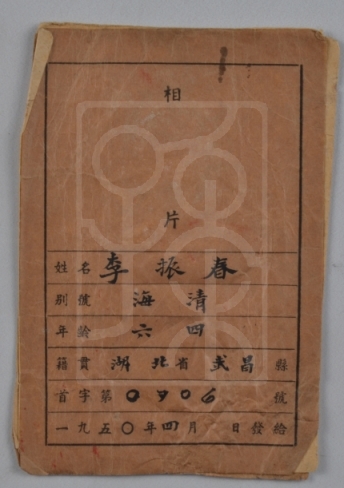 相
片
姓名 李振春
別號 海清
年齡 六四
籍貫 湖北省武昌縣
首字第0906號
一九五〇年四月 日發給